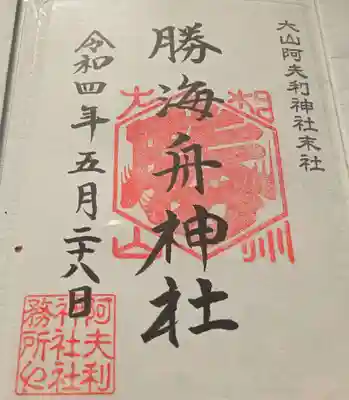 大山阿夫利神社末社
勝海舟神社
相州大山
令和四年五月二十八日
阿夫利
神社社
務所印